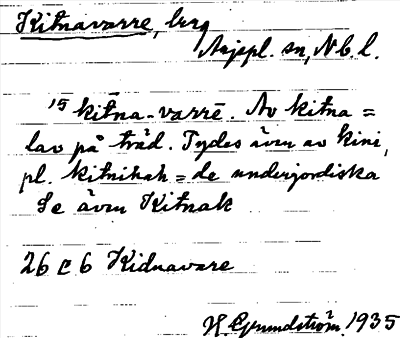 Kitnavarre, berg
Arjepl. sn, Nb. l.
15 kitna-varrē. Av kitna =
lav på träd. Tydes även av kini,
pl. kitnihah = de underjordiska
Se även Kitnak
26 C 6 Kidnavare
H. Grundström. 1935